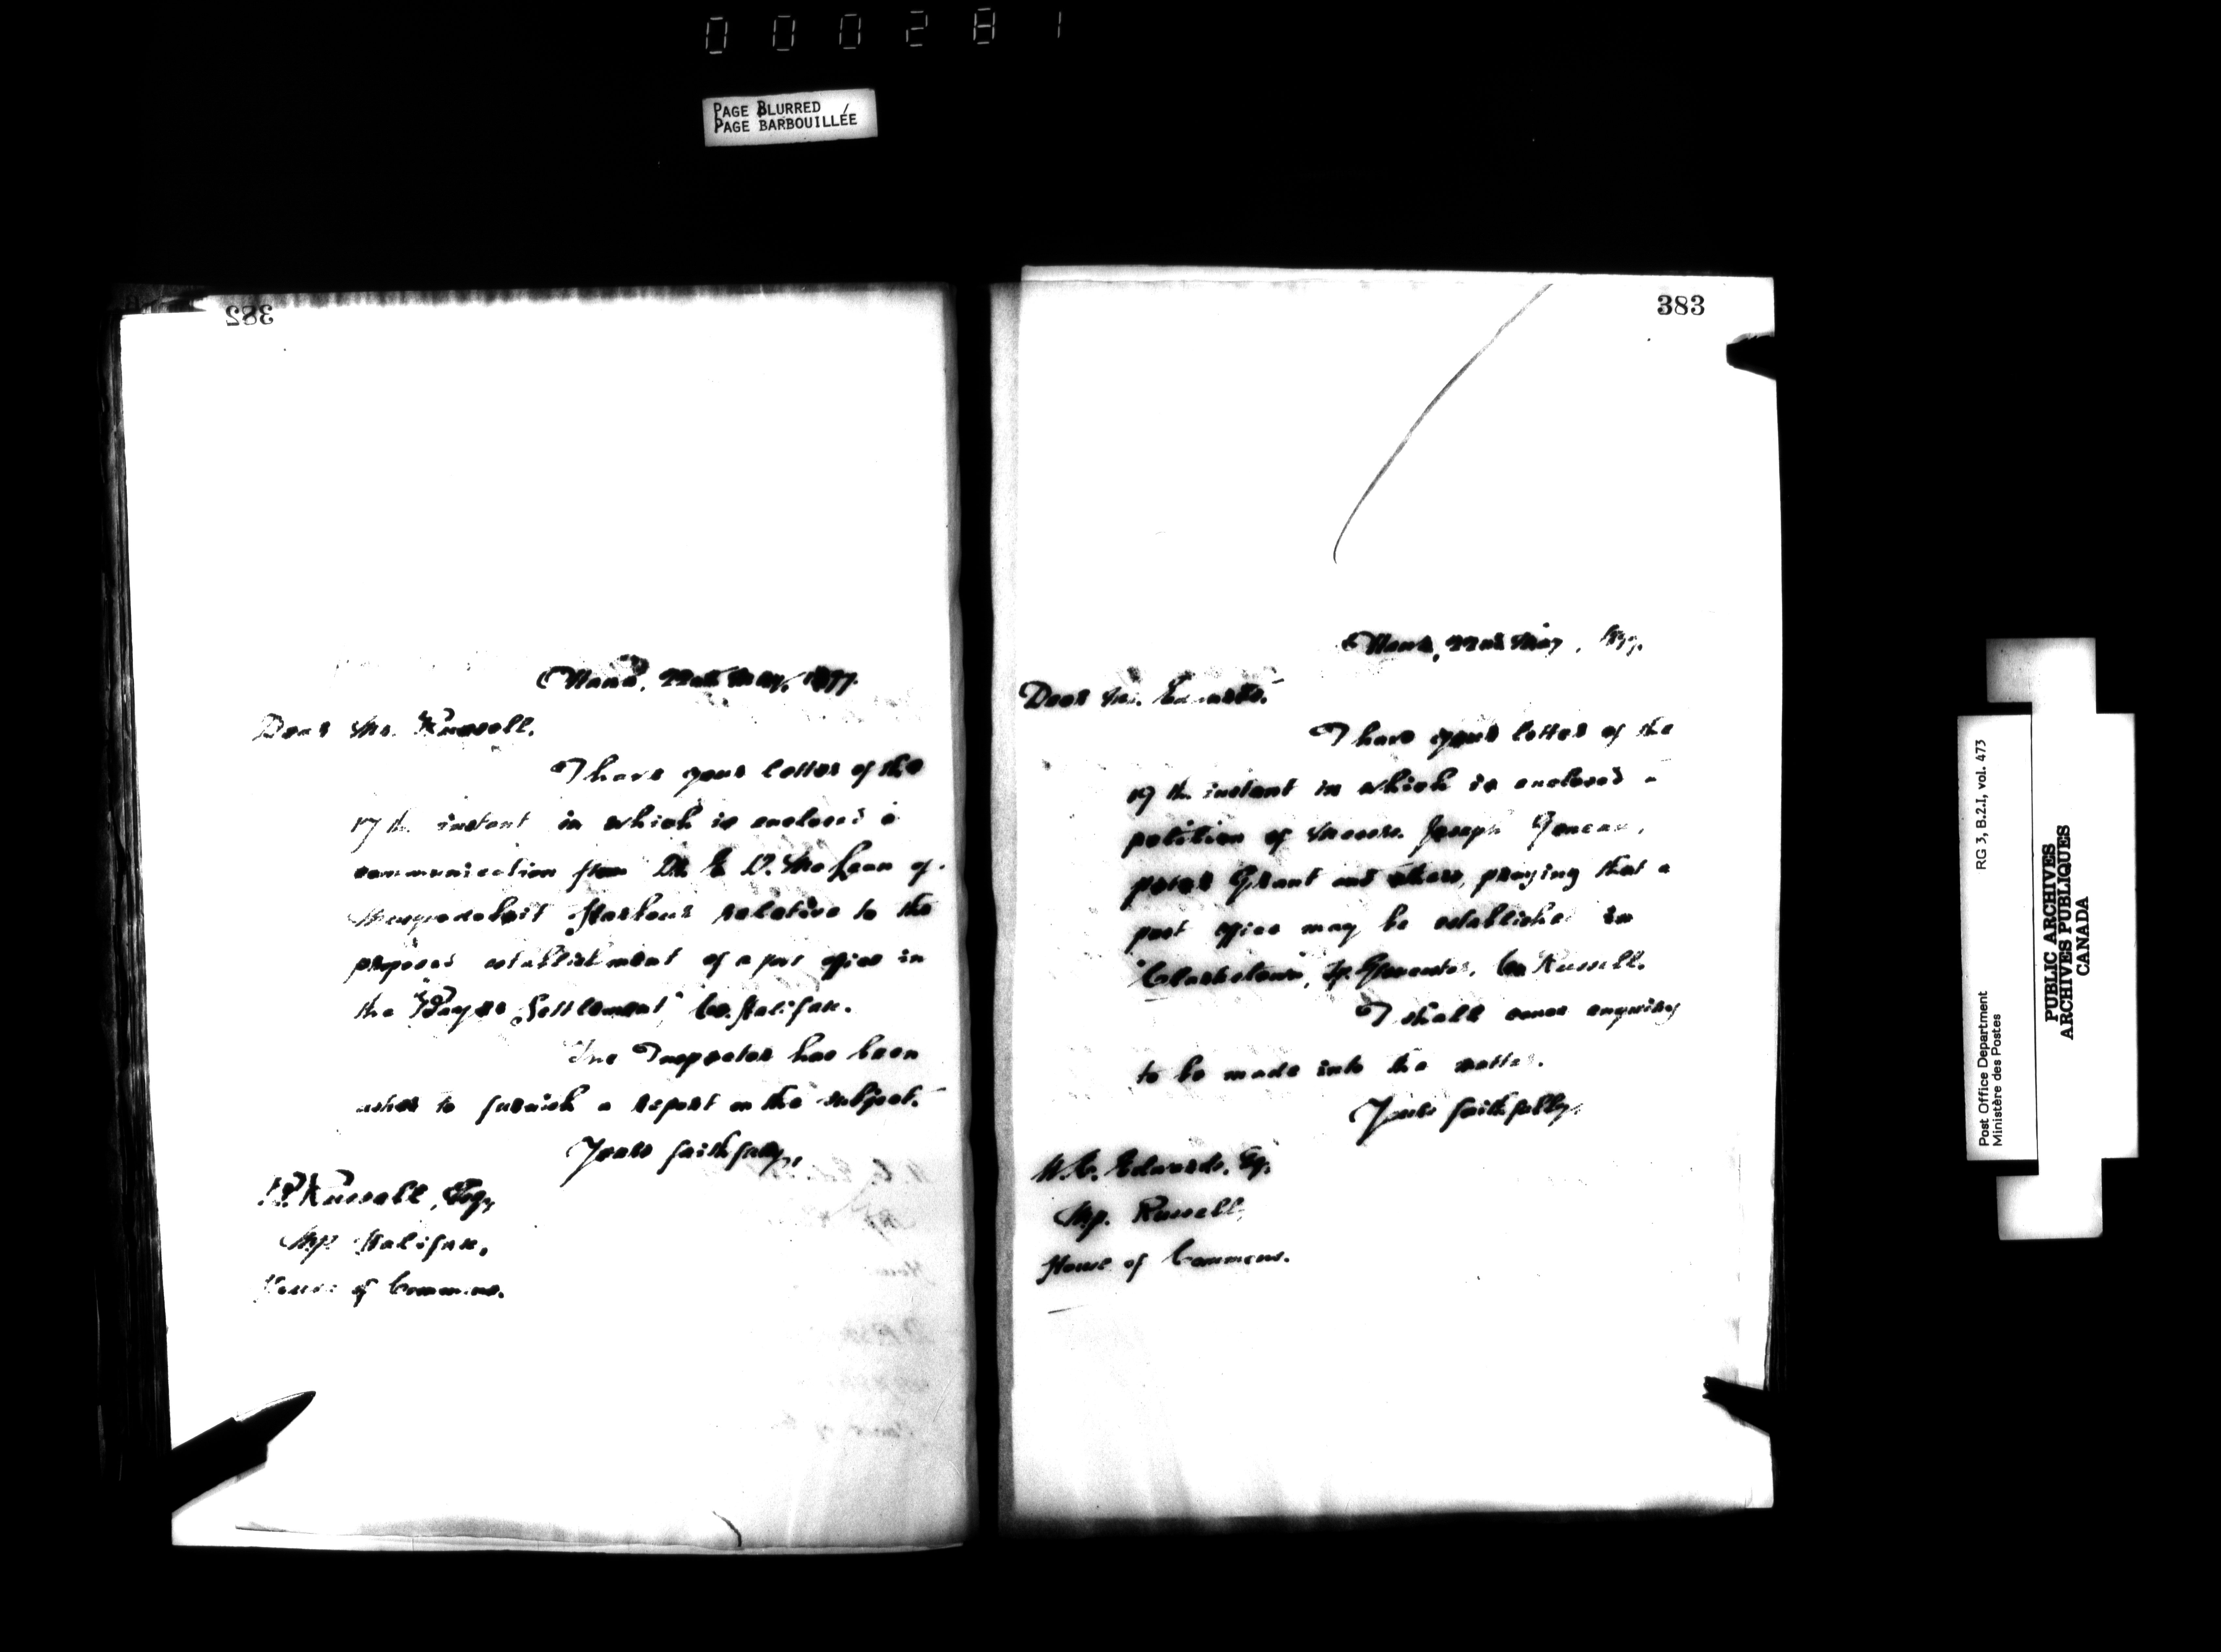 000281
PAGE BLURRED
PAGE BARBOUILLÉE
382
Ottawa, 22nd May, 1897.
Dear Mr. Russell,
I have your letter of the
17th instant in which is enclosed a
communication from Dr. E. D. McLean of
Musquodoboit Harbour relative to the
proposed establishment of a post office in
the "Bayers Settlement," Co. Halifax.
The Inspector has been
asked to furnish a report on the subject.
Yours faithfully,
B. Russell, Esq.,
M.P. Halifax,
House of Commons.
383
Ottawa, 22nd May, 1897.
Dear Mr. Edwards,
I have your letter of the
19th instant in which is enclosed a
petition of Messrs. Joseph
Peter Grant and others, praying that a
post office may be established in
"Clarkstown, Tp. Gloucester, Co. Russell.
I shall cause enquiry
to be made into the matter.
Yours faithfully,
W.C. Edwards, Esq.
M.P. Russell,
House of Commons.
Post Office Department
Ministère des Postes
RG 3, B.2.I, vol. 473
PUBLIC ARCHIVES
ARCHIVES PUBLIQUES
CANADA